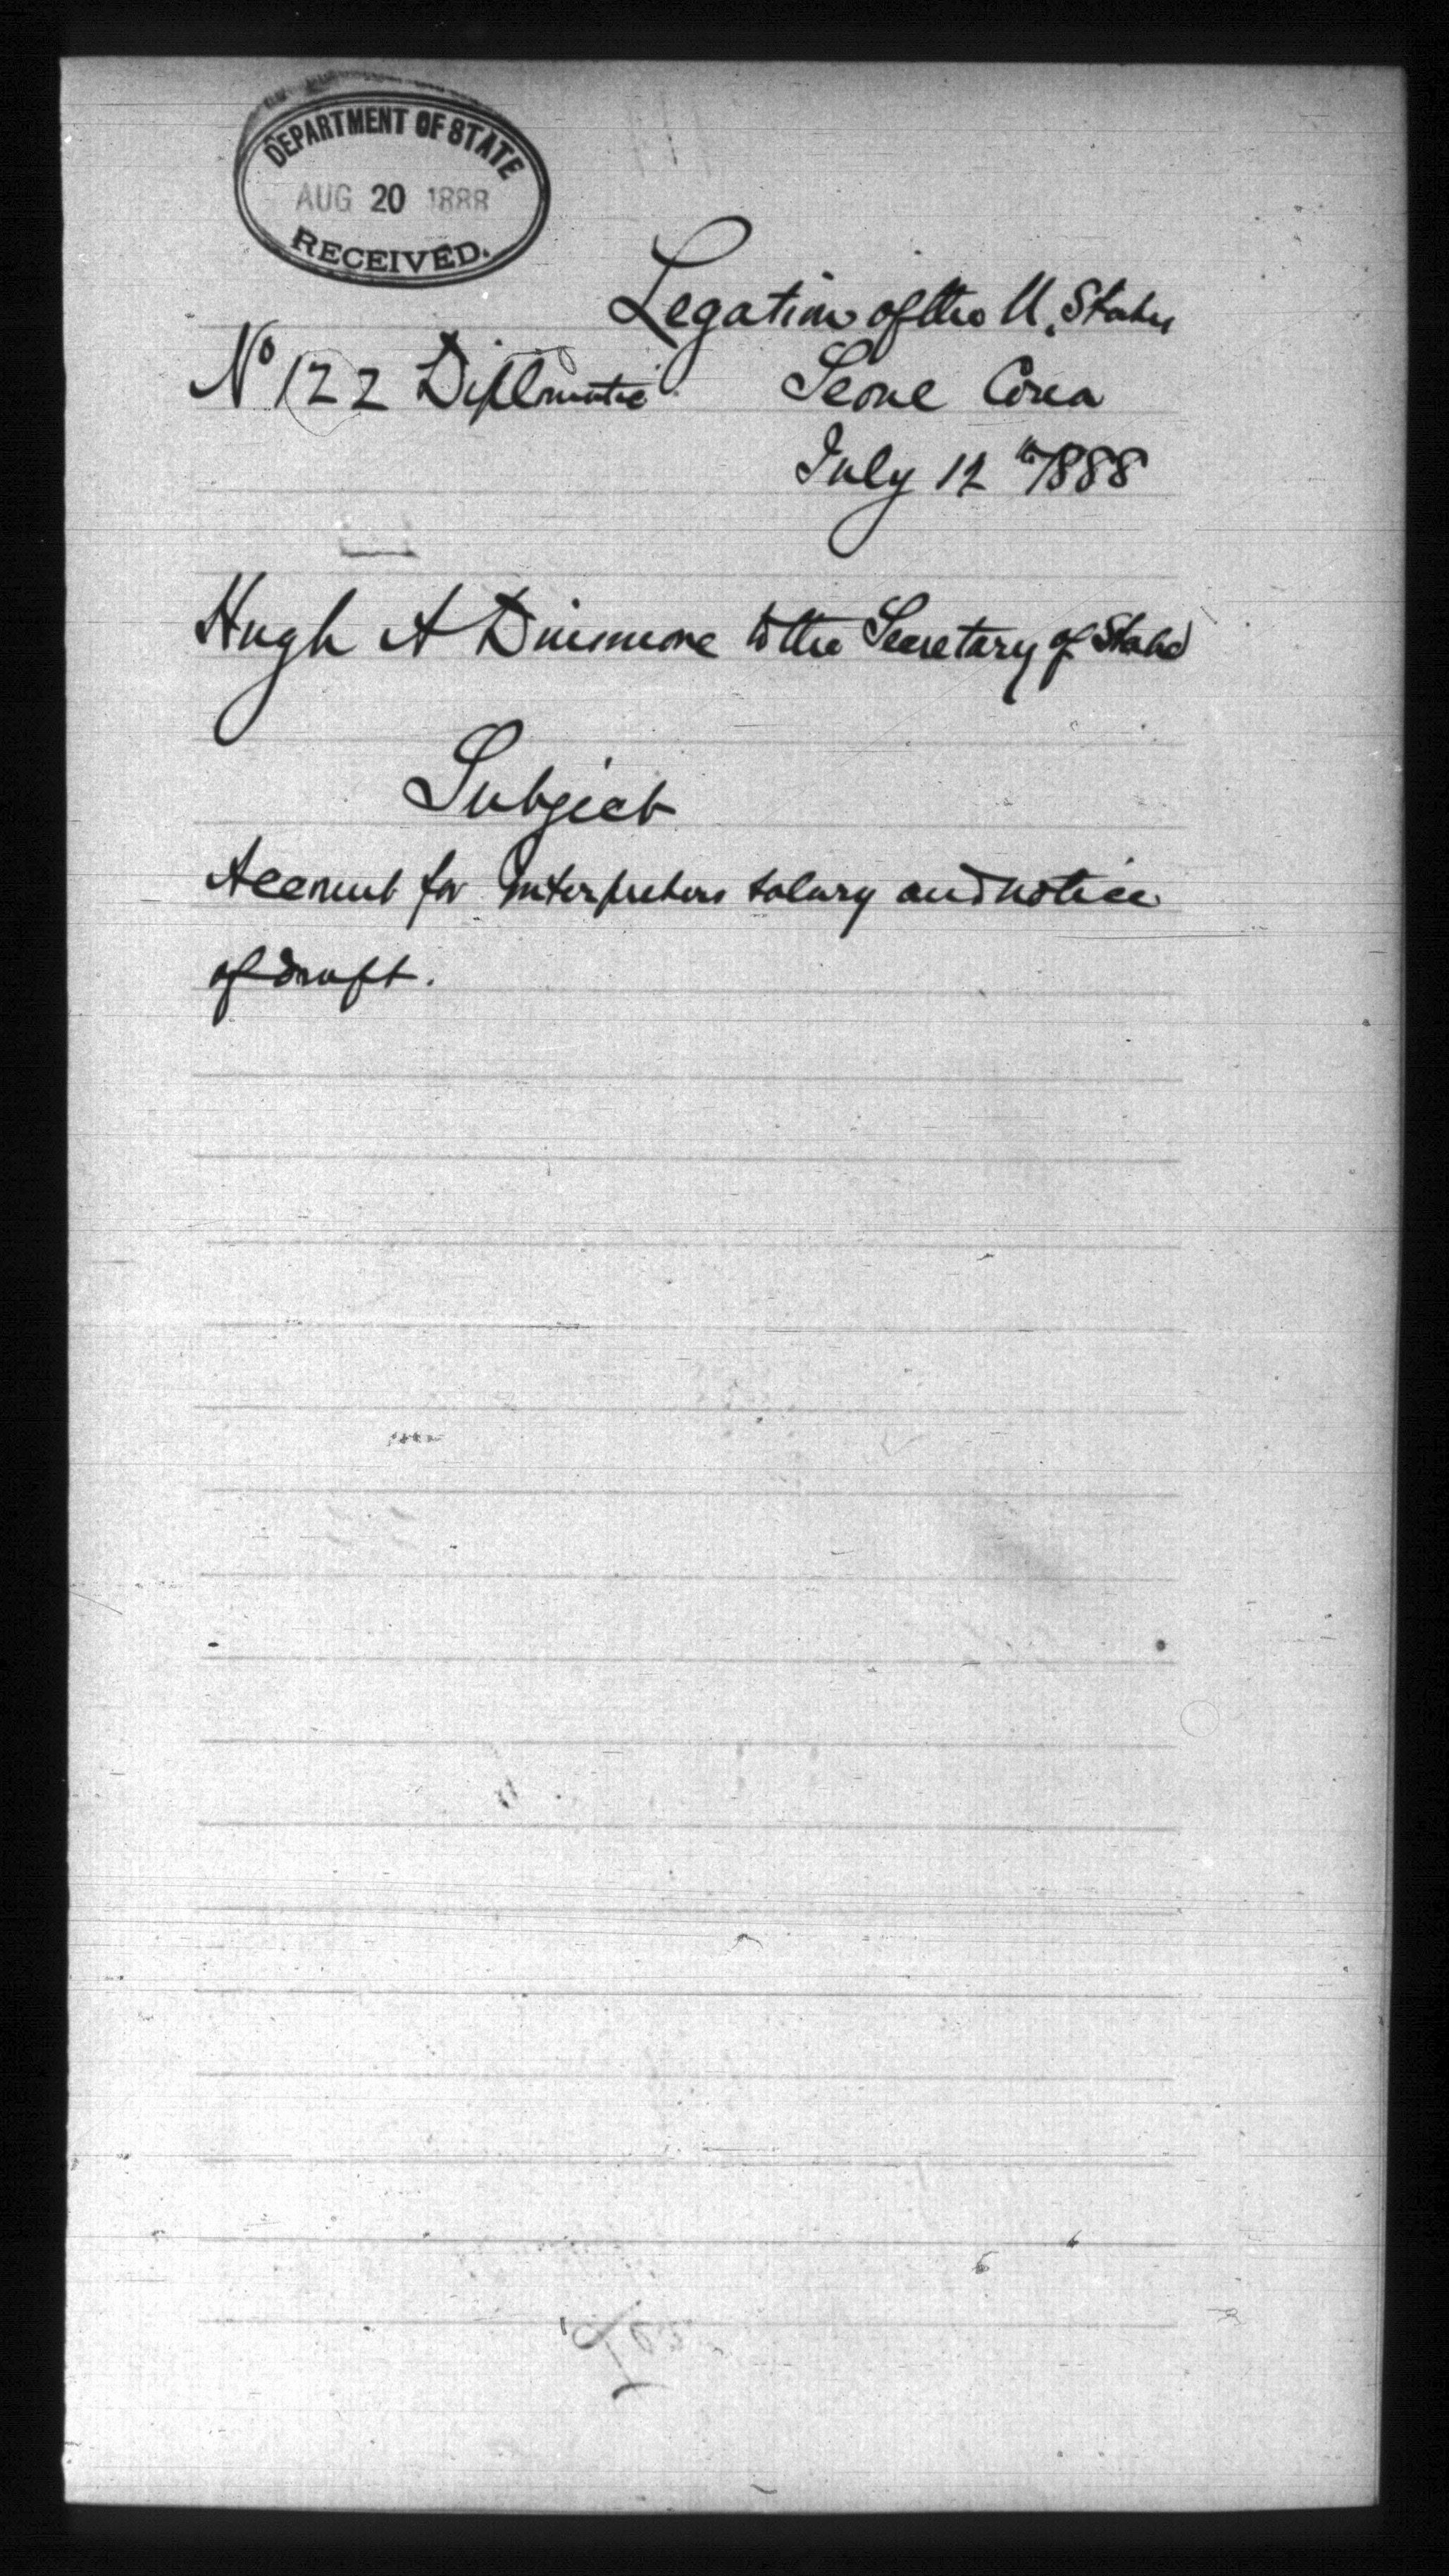 DEPARTMENT OF STATE
AUG 20 1888
RECEIVED.
Legation of the U. States
No 122 Diplomatic Seoul Corea
July 12th 1888
Hugh A Dinsmore to the Secretary of State
Subject
Account for Interpreters salary and notice
of draft.